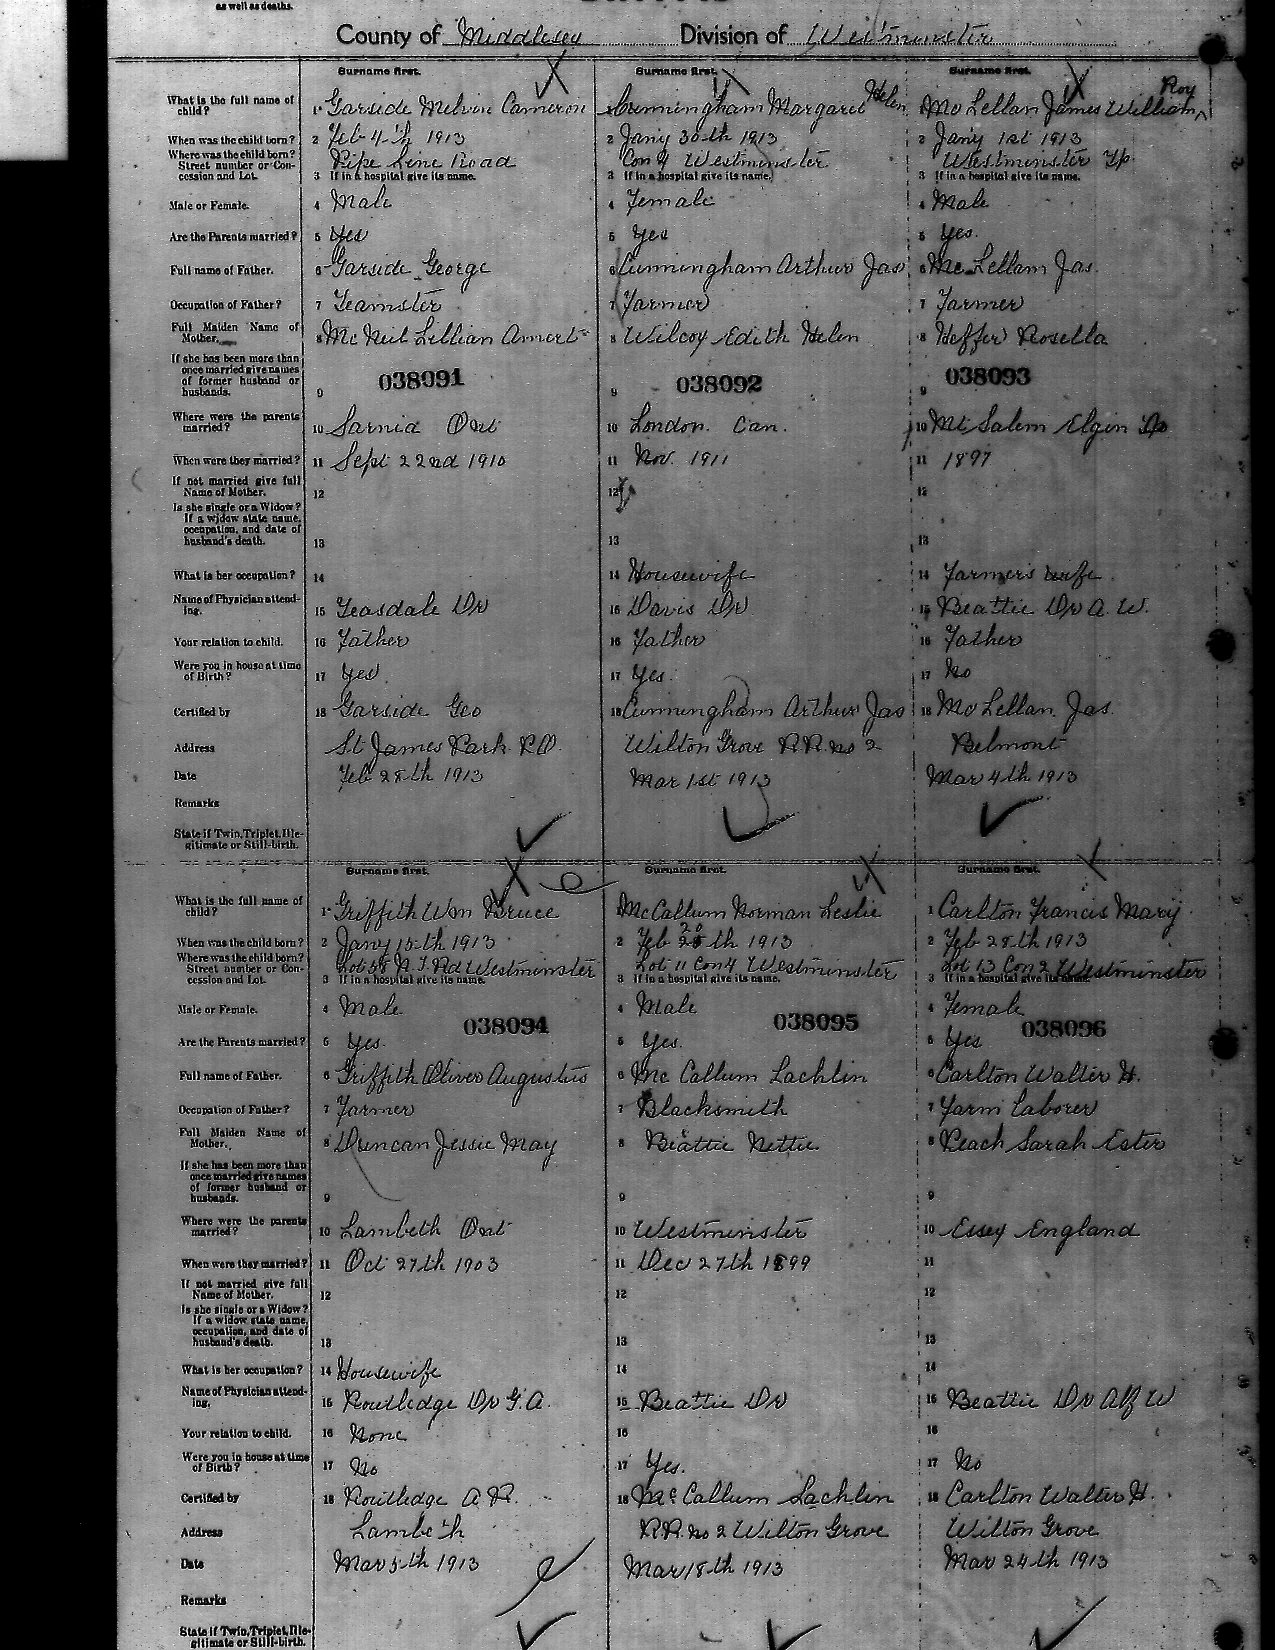 as well as deaths.
County of Middlesex Division of Westminster
Surname first. Surname first. Surname first.
Helen Roy
What is the full name of child? 1 Garside Melvin Cameron 1 Cunningham Margaret 1 McLellan James William
When was the child born? 2 Feb 4th 1913 2 Jany 30th 1913 2 Jany 1st 1913
Where was the child born? Street number or Concession and Lot. Pipe Line Road Con 4 Westminster Westminster Tp
3 If in a hospital give its name. 3 If in a hospital give its name. 3 If in a hospital give its name.
Male or Female. 4 Male 4 Female 4 Male
Are the Parents married? 5 Yes 5 Yes 5 Yes.
Full name of Father. 6 Garside George 6 Cunningham Arthur Jas 6 McLellan Jas.
Occupation of Father? 7 Teamster 7 Farmer 7 Farmer
Full Maiden Name of Mother. 8 McNeil Lillian 8 Wilcox Edith Helen 8 Heffer Rosella
If she has been more than once married give names of former husband or husbands. 9 038091 9 038092 9 038093
Where were the parents married? 10 Sarnia Ont 10 London. Can. 10 Mt Salem Elgin
When were they married? 11 Sept 22nd 1910 11 Nov. 1911 11 1897
If not married give full Name of Mother. 12 12 12
Is she single or a Widow? If a widow state name, occupation, and date of husband's death. 13 13 13
What is her occupation? 14 14 Housewife 14 Farmers wife
Name of Physician attending. 15 Teasdale Dr 15 Davis Dr 15 Beattie Dr A. W.
Your relation to child. 16 Father 16 Father 16 Father
Were you in house at time of Birth? 17 Yes 17 Yes. 17 No
Certified by 18 Garside Geo 18 Cunningham Arthur Jas 18 McLellan Jas.
Address St James Park P.O. Wilton Grove R.R. no 2 Belmont
Date Feb 28th 1913 Mar 1st 1913 Mar 4th 1913
Remarks
State if Twin, Triplet, Illegitimate or Still-birth.
Surname first. Surname first. Surname first.
What is the full name of child? 1 Griffith Wm Bruce 1 McCallum Norman Leslie 1 Carlton Francis Mary
When was the child born? 2 Jany 15th 1913 2 Feb 20th 1913 2 Feb 28th 1913
Where was the child born? Street number or Concession and Lot. Lot 58 N. T. Rd Westminster Lot 11 Con 4 Westminster Lot 13 Con 2 Westminster
3 If in a hospital give its name. 3 If in a hospital give its name. 3 If in a hospital give its name.
Male or Female. 4 Male 4 Male 4 Female
038094 038095 038096
Are the Parents married? 5 Yes. 5 Yes. 5 Yes
Full name of Father. 6 Griffith Oliver Augustus 6 McCallum Lachlin 6 Carlton Walter H.
Occupation of Father? 7 Farmer 7 Blacksmith 7 Farm Laborer
Full Maiden Name of Mother. 8 Duncan Jessie May 8 Beattie Nettie 8 Peach Sarah Ester
If she has been more than once married give names of former husband or husbands. 9 9 9
Where were the parents married? 10 Lambeth Ont 10 Westminster 10 Essex England
When were they married? 11 Oct 27th 1903 11 Dec 27th 1899 11
If not married give full Name of Mother. 12 12 12
Is she single or a Widow? If a widow state name, occupation, and date of husband's death. 13 13 13
What is her occupation? 14 Housewife 14 14
Name of Physician attending. 15 Routledge Dr G. A. 15 Beattie Dr 15 Beattie Dr Alf W
Your relation to child. 16 None 16 16
Were you in house at time of Birth? 17 No 17 Yes. 17 No
Certified by 18 Routledge A R. 18 McCallum Lachlin 18 Carlton Walter H.
Address Lambeth R.R. no 2 Wilton Grove Wilton Grove
Date Mar 5th 1913 Mar 18th 1913 Mar 24th 1913
Remarks
State if Twin, Triplet, Illegitimate or Still-birth.